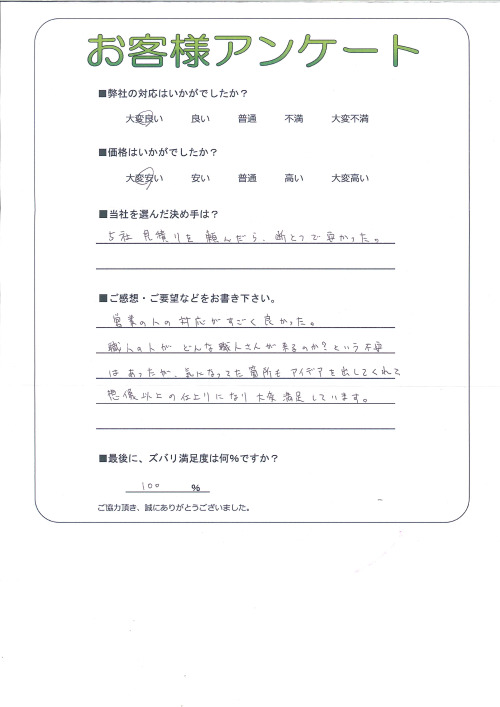 お客様アンケート
■弊社の対応はいかがでしたか？
大変良い 良い 普通 不満 大変不満
■価格はいかがでしたか？
大変安い 安い 普通 高い 大変高い
■当社を選んだ決め手は？
5社 見積りを 頼んだら、断とつで安かった。
■ご感想・ご要望などをお書き下さい。
営業の人の対応がすごく良かった。
職人の人が どんな職人さんが来るのか？という不安
はあったが、気になってた箇所も アイデアを出してくれて
想像以上の仕上りになり大変満足しています。
■最後に、ズバリ満足度は何％ですか？
100 ％
ご協力頂き、誠にありがとうございました。